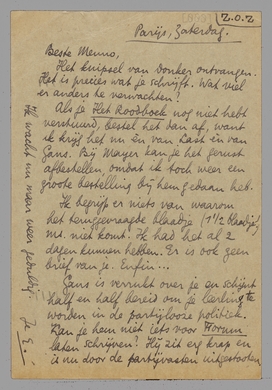 Z.O.Z.
Parijs, Zaterdag.
Beste Menno,
Het knipsel van Donker ontvangen.
Het is precies wat je schrijft. Wat viel
er anders te verwachten?
Als je Het Roodboek nog niet hebt
verstuurd, bestel het dan af, want
ik krijg het nu èn van Last èn van
Gans. Bij Mayer kan je het gerust
afbestellen, omdat ik toch weer een
groote bestelling bij hem gedaan heb.
Ik begrijp er niets van waarom
het teruggevraagde blaadje (1½ blaadje)
ms. niet komt. Ik had het al 2
dagen kunnen hebben. Er is ook geen
brief van je. Enfin...
Gans is verrukt over je en schijnt
half en half bereid om je leerling te
worden in de partijlooze politiek.
Kan je hem niet iets voor Forum
laten schrijven? Hij zit er krap en
is nu door de partijvasten uitgestooten
Ik wacht nu maar weer geduldig.
Je E.